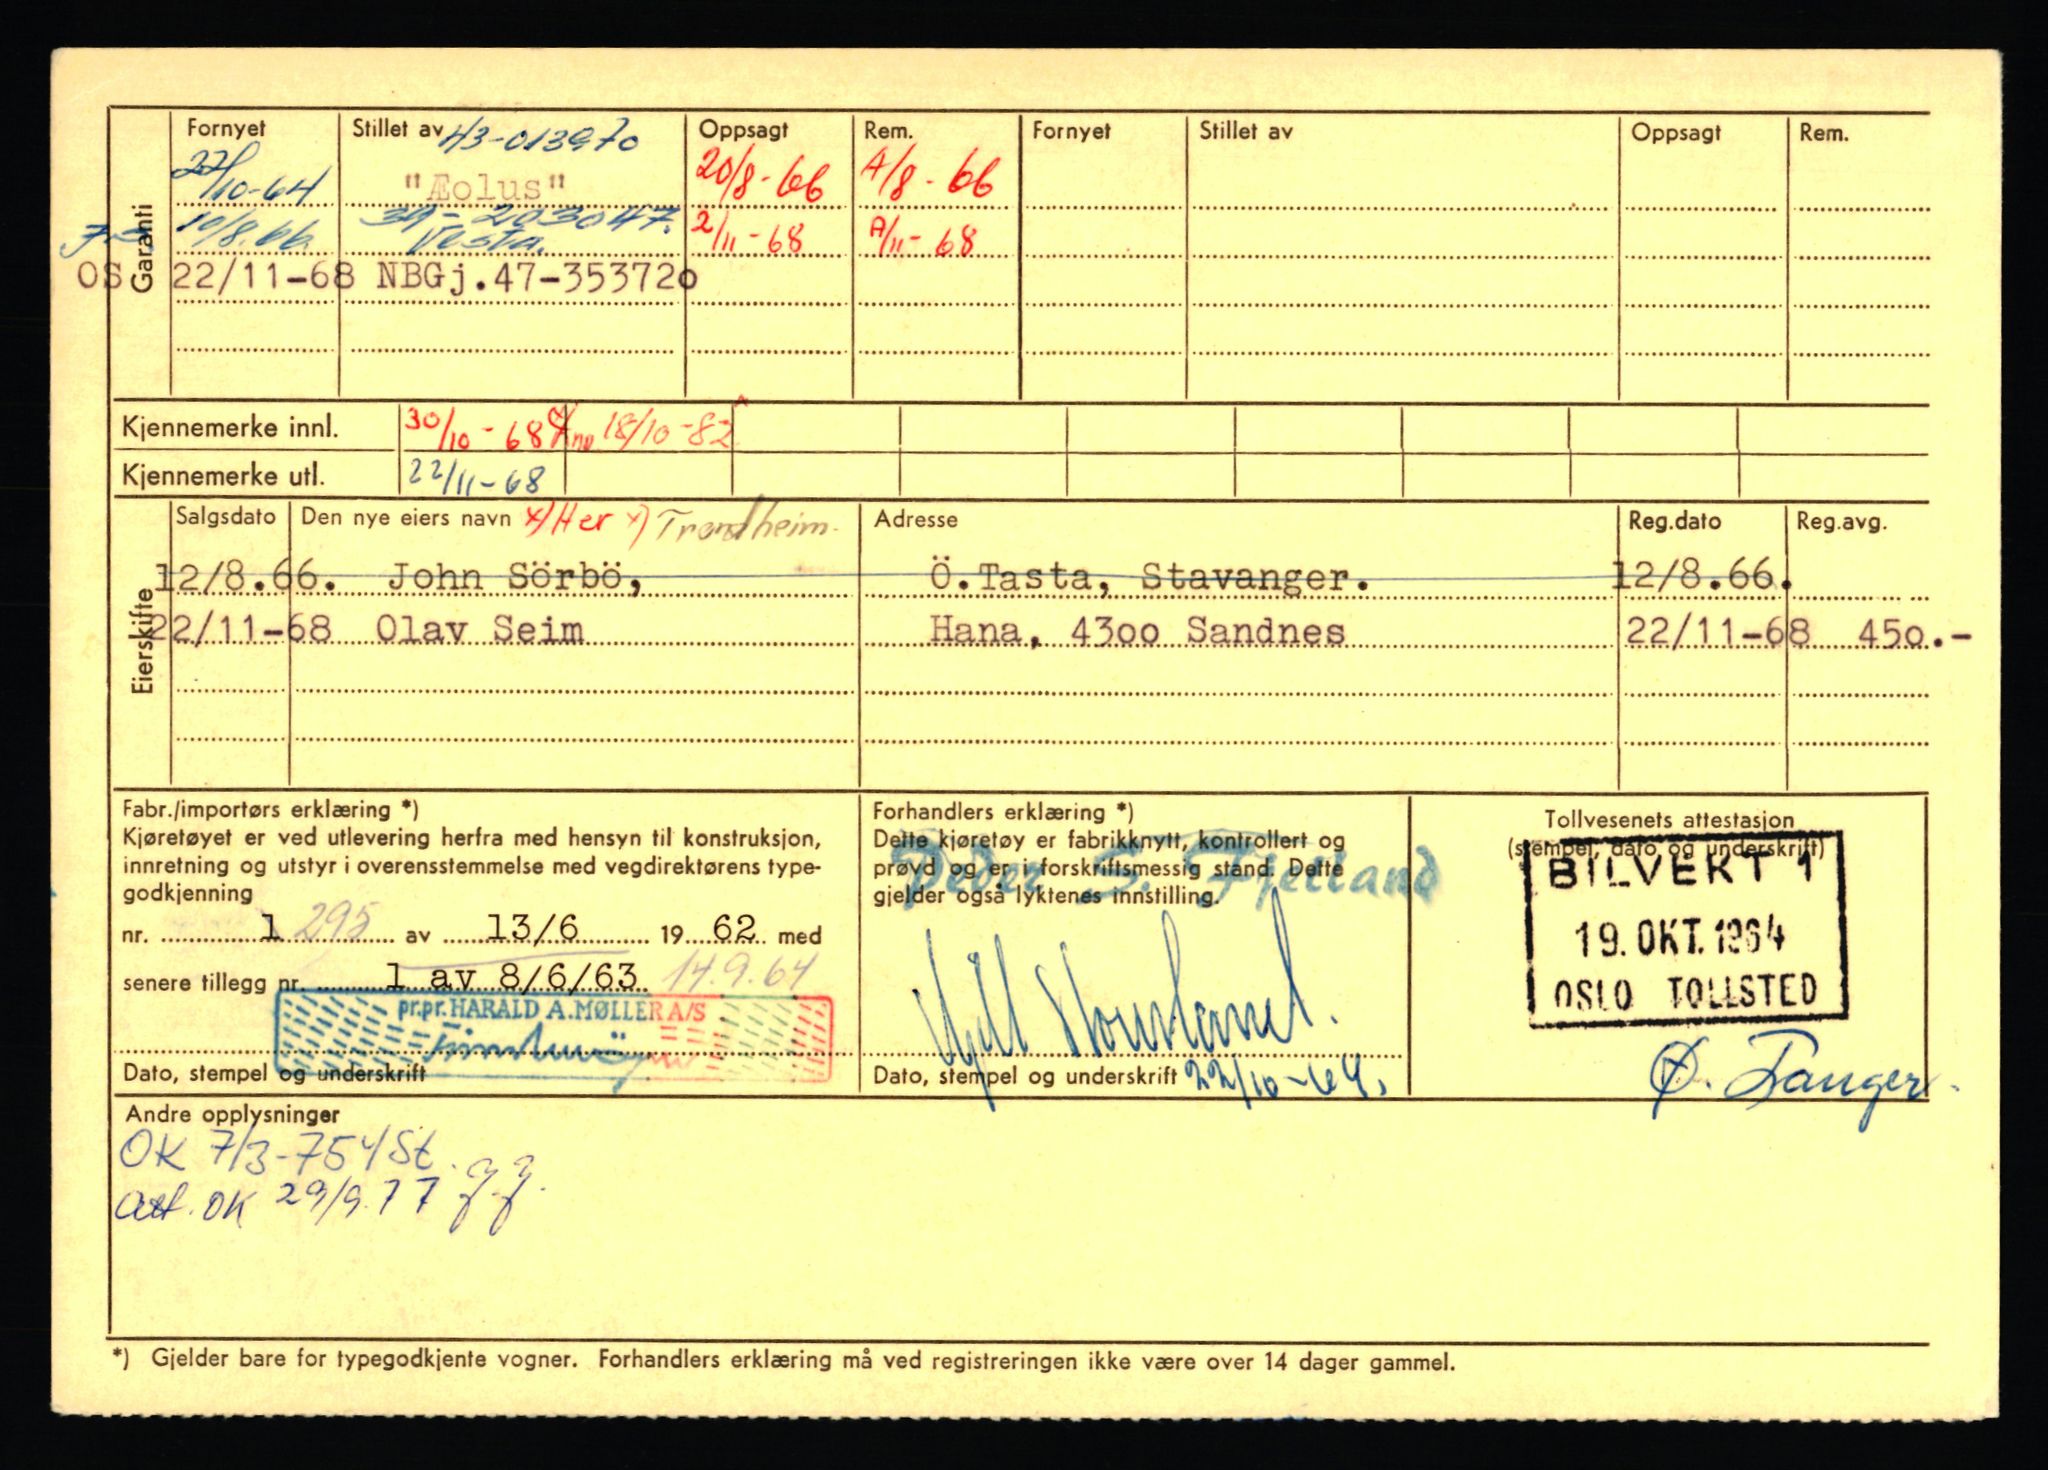 Garanti
Fornyet Stillet av 43-013970 Oppsagt Rem. Fornyet Stillet av Oppsagt Rem.
22/10-64 "Æolus" 20/8-66 A/8-66
10/8.66. 39-203047. Vesta. 2/11-68 A/11-68
OS 22/11-68 NBGj.47-353720
Kjennemerke innl. 30/10-68 18/10-82
Kjennemerke utl. 22/11-68
Eierskifte
Salgsdato Den nye eiers navn x) Her x) Trondheim. Adresse Reg.dato Reg.avg.
12/8.66. John Sörbö, Ö.Tasta, Stavanger. 12/8.66.
22/11-68 Olav Seim Hana, 4300 Sandnes 22/11-68 450.-
Fabr./importørs erklæring *)
Kjøretøyet er ved utlevering herfra med hensyn til konstruksjon,
innretning og utstyr i overensstemmelse med vegdirektørens type-
godkjenning
nr. 1 295 av 13/6 19 62 med
senere tillegg nr. 1 av 8/6/63 14.9.64
pr.pr. HARALD A. MØLLER A/S
Dato, stempel og underskrift
Forhandlers erklæring *)
Dette kjøretøy er fabrikknytt, kontrollert og
prøvd og er i forskriftsmessig stand. Dette
gjelder også lyktenes innstilling.
Peder S. Fjelland
Dato, stempel og underskrift 22/10-64.
Tollvesenets attestasjon
(stempel, dato og underskrift)
BILVEKT 1
19. OKT. 1964
OSLO TOLLSTED
Ø. Tanger.
Andre opplysninger
OK 7/3-75 4 St.
Att. OK 29/9.77
*) Gjelder bare for typegodkjente vogner. Forhandlers erklæring må ved registreringen ikke være over 14 dager gammel.